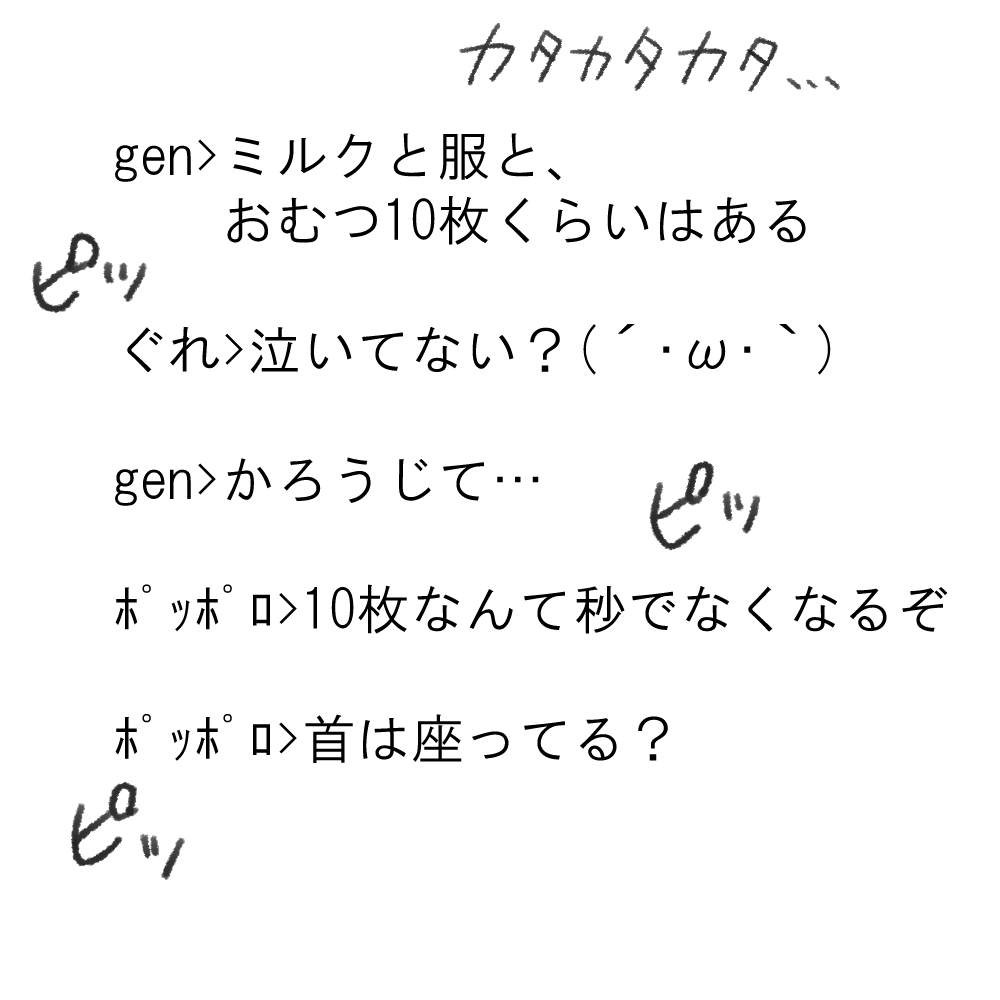 カタカタカタ、、、
gen>ミルクと服と、
おむつ10枚くらいはある
ピッ
ぐれ>泣いてない？(´・ω・｀)
gen>かろうじて…
ピッ
ﾎﾟｯﾎﾟﾛ>10枚なんて秒でなくなるぞ
ﾎﾟｯﾎﾟﾛ>首は座ってる？
ピッ